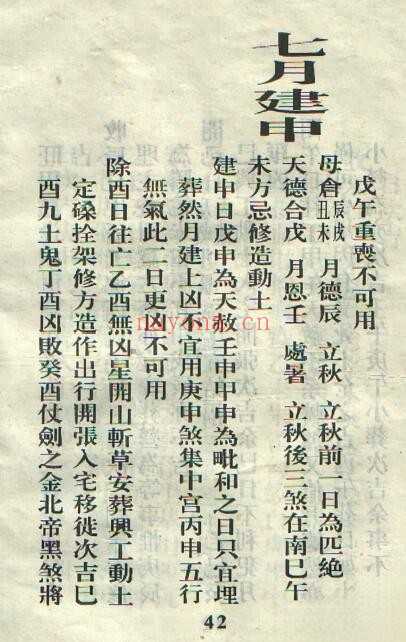 七月建申
戊午重喪不可用
母倉辰戌丑未 月德辰 立秋 立秋前一日為匹絕
天德合戊 月恩壬 處暑 立秋後三煞在南巳午
未方忌修造動土
建申日戊申為天赦壬申甲申為毗和之日只宜埋
葬然月建上凶不宜用庚申煞集中宮丙申五行
無氣此二日更凶不可用
除酉日往亡乙酉無凶星開山斬草安葬興工動土
定磉拴架修方造作出行開張入宅移徙次吉巳
酉九土鬼丁酉凶敗癸酉仗劍之金北帝黑煞將
42
nayona.cn